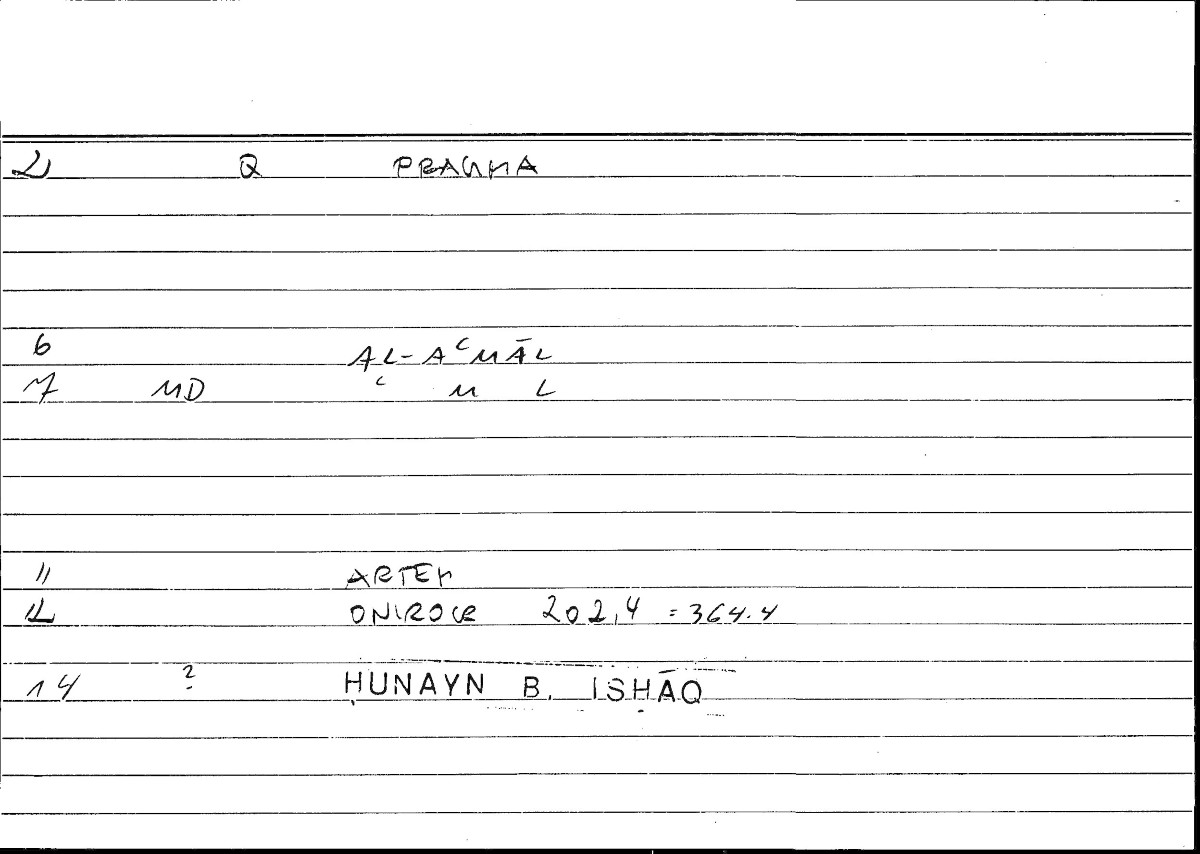 2 Q PRAGMA
6 AL-AʿMĀL
7 MD ʿ M L
11 ARTEM
12 ONIROCR 202,4 = 364.4
14 ? ḤUNAYN B. ISḤĀQ